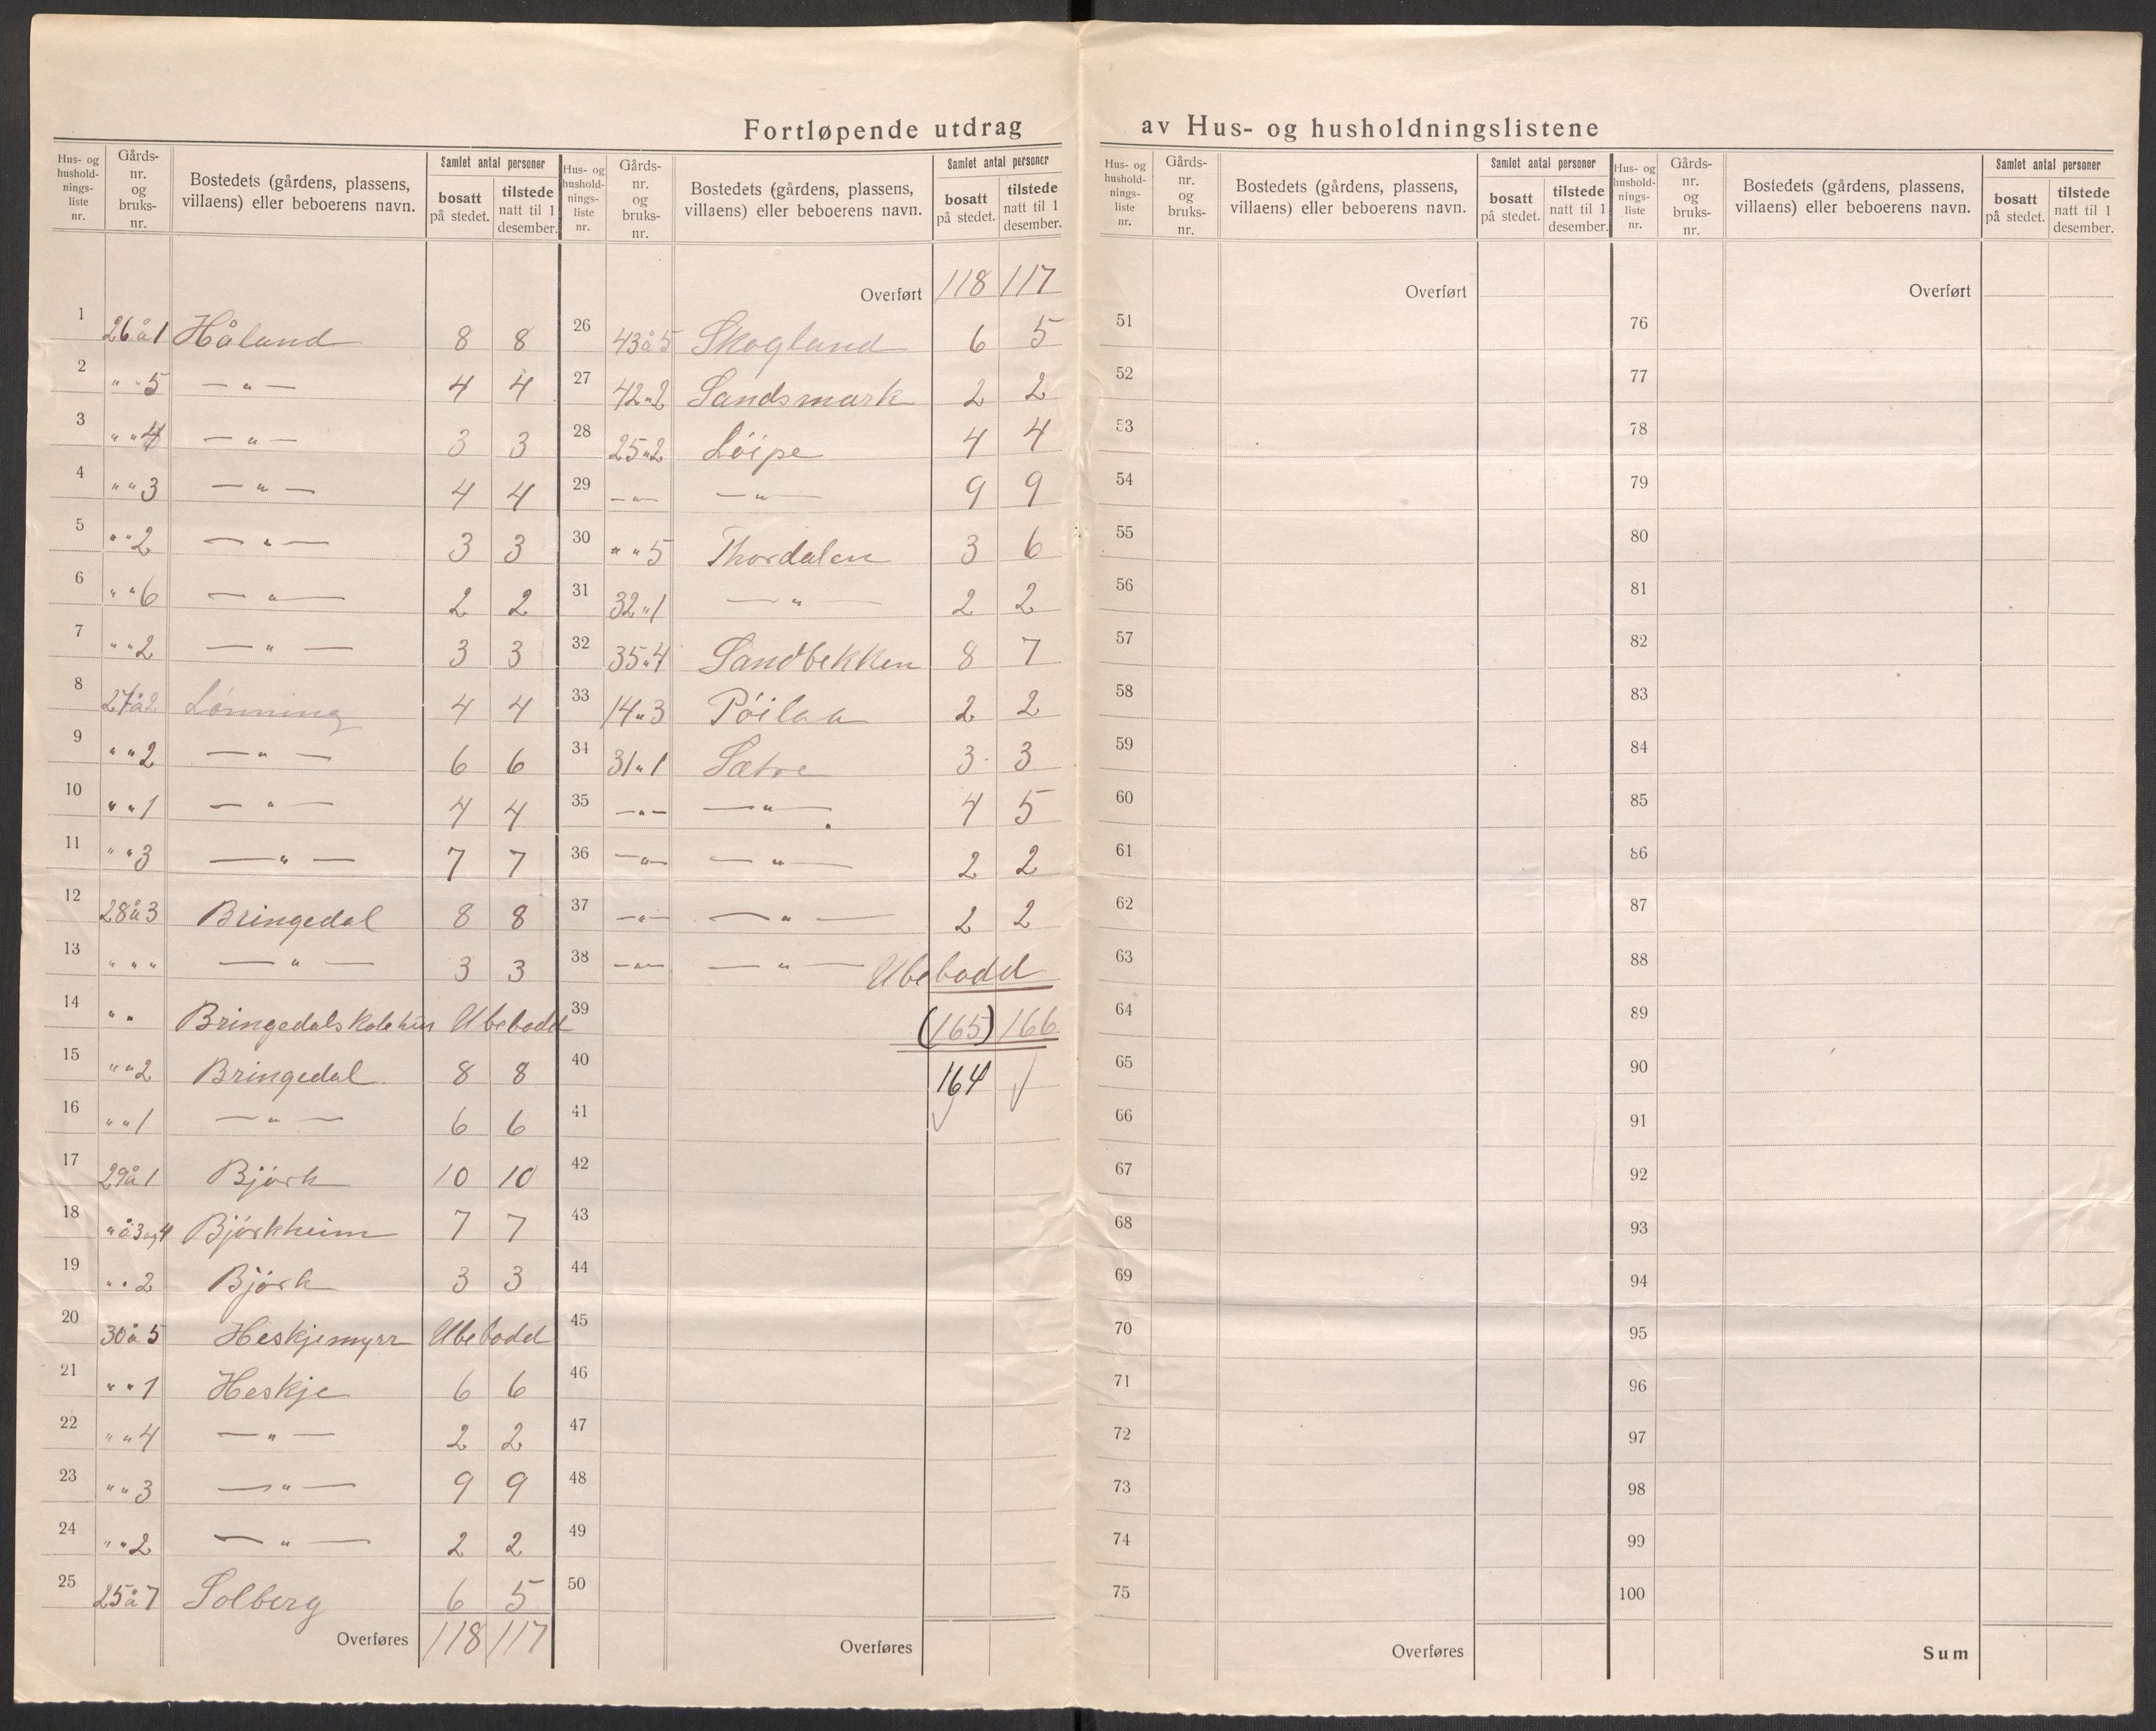 Fortløpende utdrag av Hus- og husholdningslistene
Hus- og hushold-nings-liste nr. | Gårds-nr. og bruks-nr. | Bostedets (gårdens, plassens, villaens) eller beboerens navn. | Samlet antal personer: bosatt på stedet. | tilstede natt til 1 desember.
1 26 å 1 Håland 8 8
2 " " 5 — " — 4 4
3 " " 4 — " — 3 3
4 " " 3 — " — 4 4
5 " " 2 — " — 3 3
6 " " 6 — " — 2 2
7 " " 2 — " — 3 3
8 27 å 2 Lønning 4 4
9 " " 2 — " — 6 6
10 " " 1 — " — 4 4
11 " " 3 — " — 7 7
12 28 å 3 Bringedal 8 8
13 " " " — " — 3 3
14 " " Bringedalskolehus Ubebodd
15 " " 2 Bringedal 8 8
16 " " 1 — " — 6 6
17 29 å 1 Björk 10 10
18 " å 3 og 4 Björkheim 7 7
19 " " 2 Björk 3 3
20 30 å 5 Heskjemyrr Ubebodd
21 " " 1 Heskje 6 6
22 " " 4 — " — 2 2
23 " " 3 — " — 9 9
24 " " 2 — " — 2 2
25 25 å 7 Solberg 6 5
Overføres 118 117
Hus- og hushold-nings-liste nr. | Gårds-nr. og bruks-nr. | Bostedets (gårdens, plassens, villaens) eller beboerens navn. | Samlet antal personer: bosatt på stedet. | tilstede natt til 1 desember.
Overført 118 117
26 43 å 5 Skogland 6 5
27 42 " 2 Sandsmark 2 2
28 25 " 2 Löipe 4 4
29 — " — — " — 9 9
30 " " 5 Thordalen 3 6
31 32 " 1 — " — 2 2
32 35 " 4 Sandbekken 8 7
33 14 " 3 Pöilaa 2 2
34 31 " 1 Sætre 3 3
35 — " — — " — 4 5
36 — " — — " — 2 2
37 — " — — " — 2 2
38 — " — — " — Ubebodd
39 (165) 166
40 164
41
42
43
44
45
46
47
48
49
50
Overføres
Hus- og hushold-nings-liste nr. | Gårds-nr. og bruks-nr. | Bostedets (gårdens, plassens, villaens) eller beboerens navn. | Samlet antal personer: bosatt på stedet. | tilstede natt til 1 desember.
Overført
51
52
53
54
55
56
57
58
59
60
61
62
63
64
65
66
67
68
69
70
71
72
73
74
75
Overføres
Hus- og hushold-nings-liste nr. | Gårds-nr. og bruks-nr. | Bostedets (gårdens, plassens, villaens) eller beboerens navn. | Samlet antal personer: bosatt på stedet. | tilstede natt til 1 desember.
Overført
76
77
78
79
80
81
82
83
84
85
86
87
88
89
90
91
92
93
94
95
96
97
98
99
100
Sum